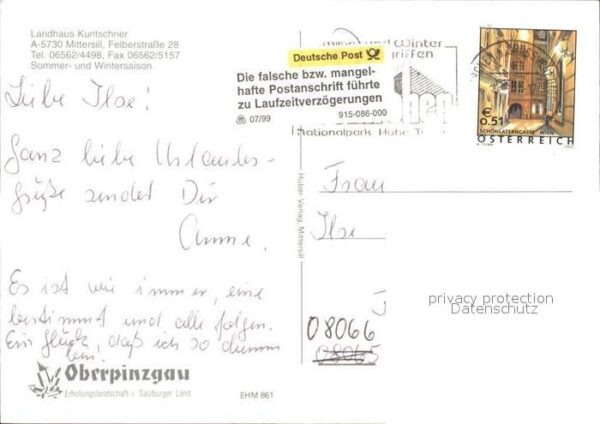 Landhaus Kuntschner
A-5730 Mittersill, Felberstraße 28
Tel. 06562/4498, Fax 06562/5157
Sommer- und Wintersaison
Liebe Ilse!
Ganz liebe Urlaubs-
grüße sendet Dir
Anne.
Es ist wie immer, eine
bestimmt und alle folgen.
Ein Glück, daß ich so dumm
bin.
Oberpinzgau
Erholungslandschaft i. Salzburger Land
EHM 861
Huber-Verlag, Mittersill
Deutsche Post
Die falsche bzw. mangel-
hafte Postanschrift führte
zu Laufzeitverzögerungen
07/99 915-086-000
und Winter
Nationalpark Hohe
€ 0.51
SCHÖNLATERNGASSE, WIEN
ÖSTERREICH
Frau
Ilse
08066
08065
privacy protection
Datenschutz